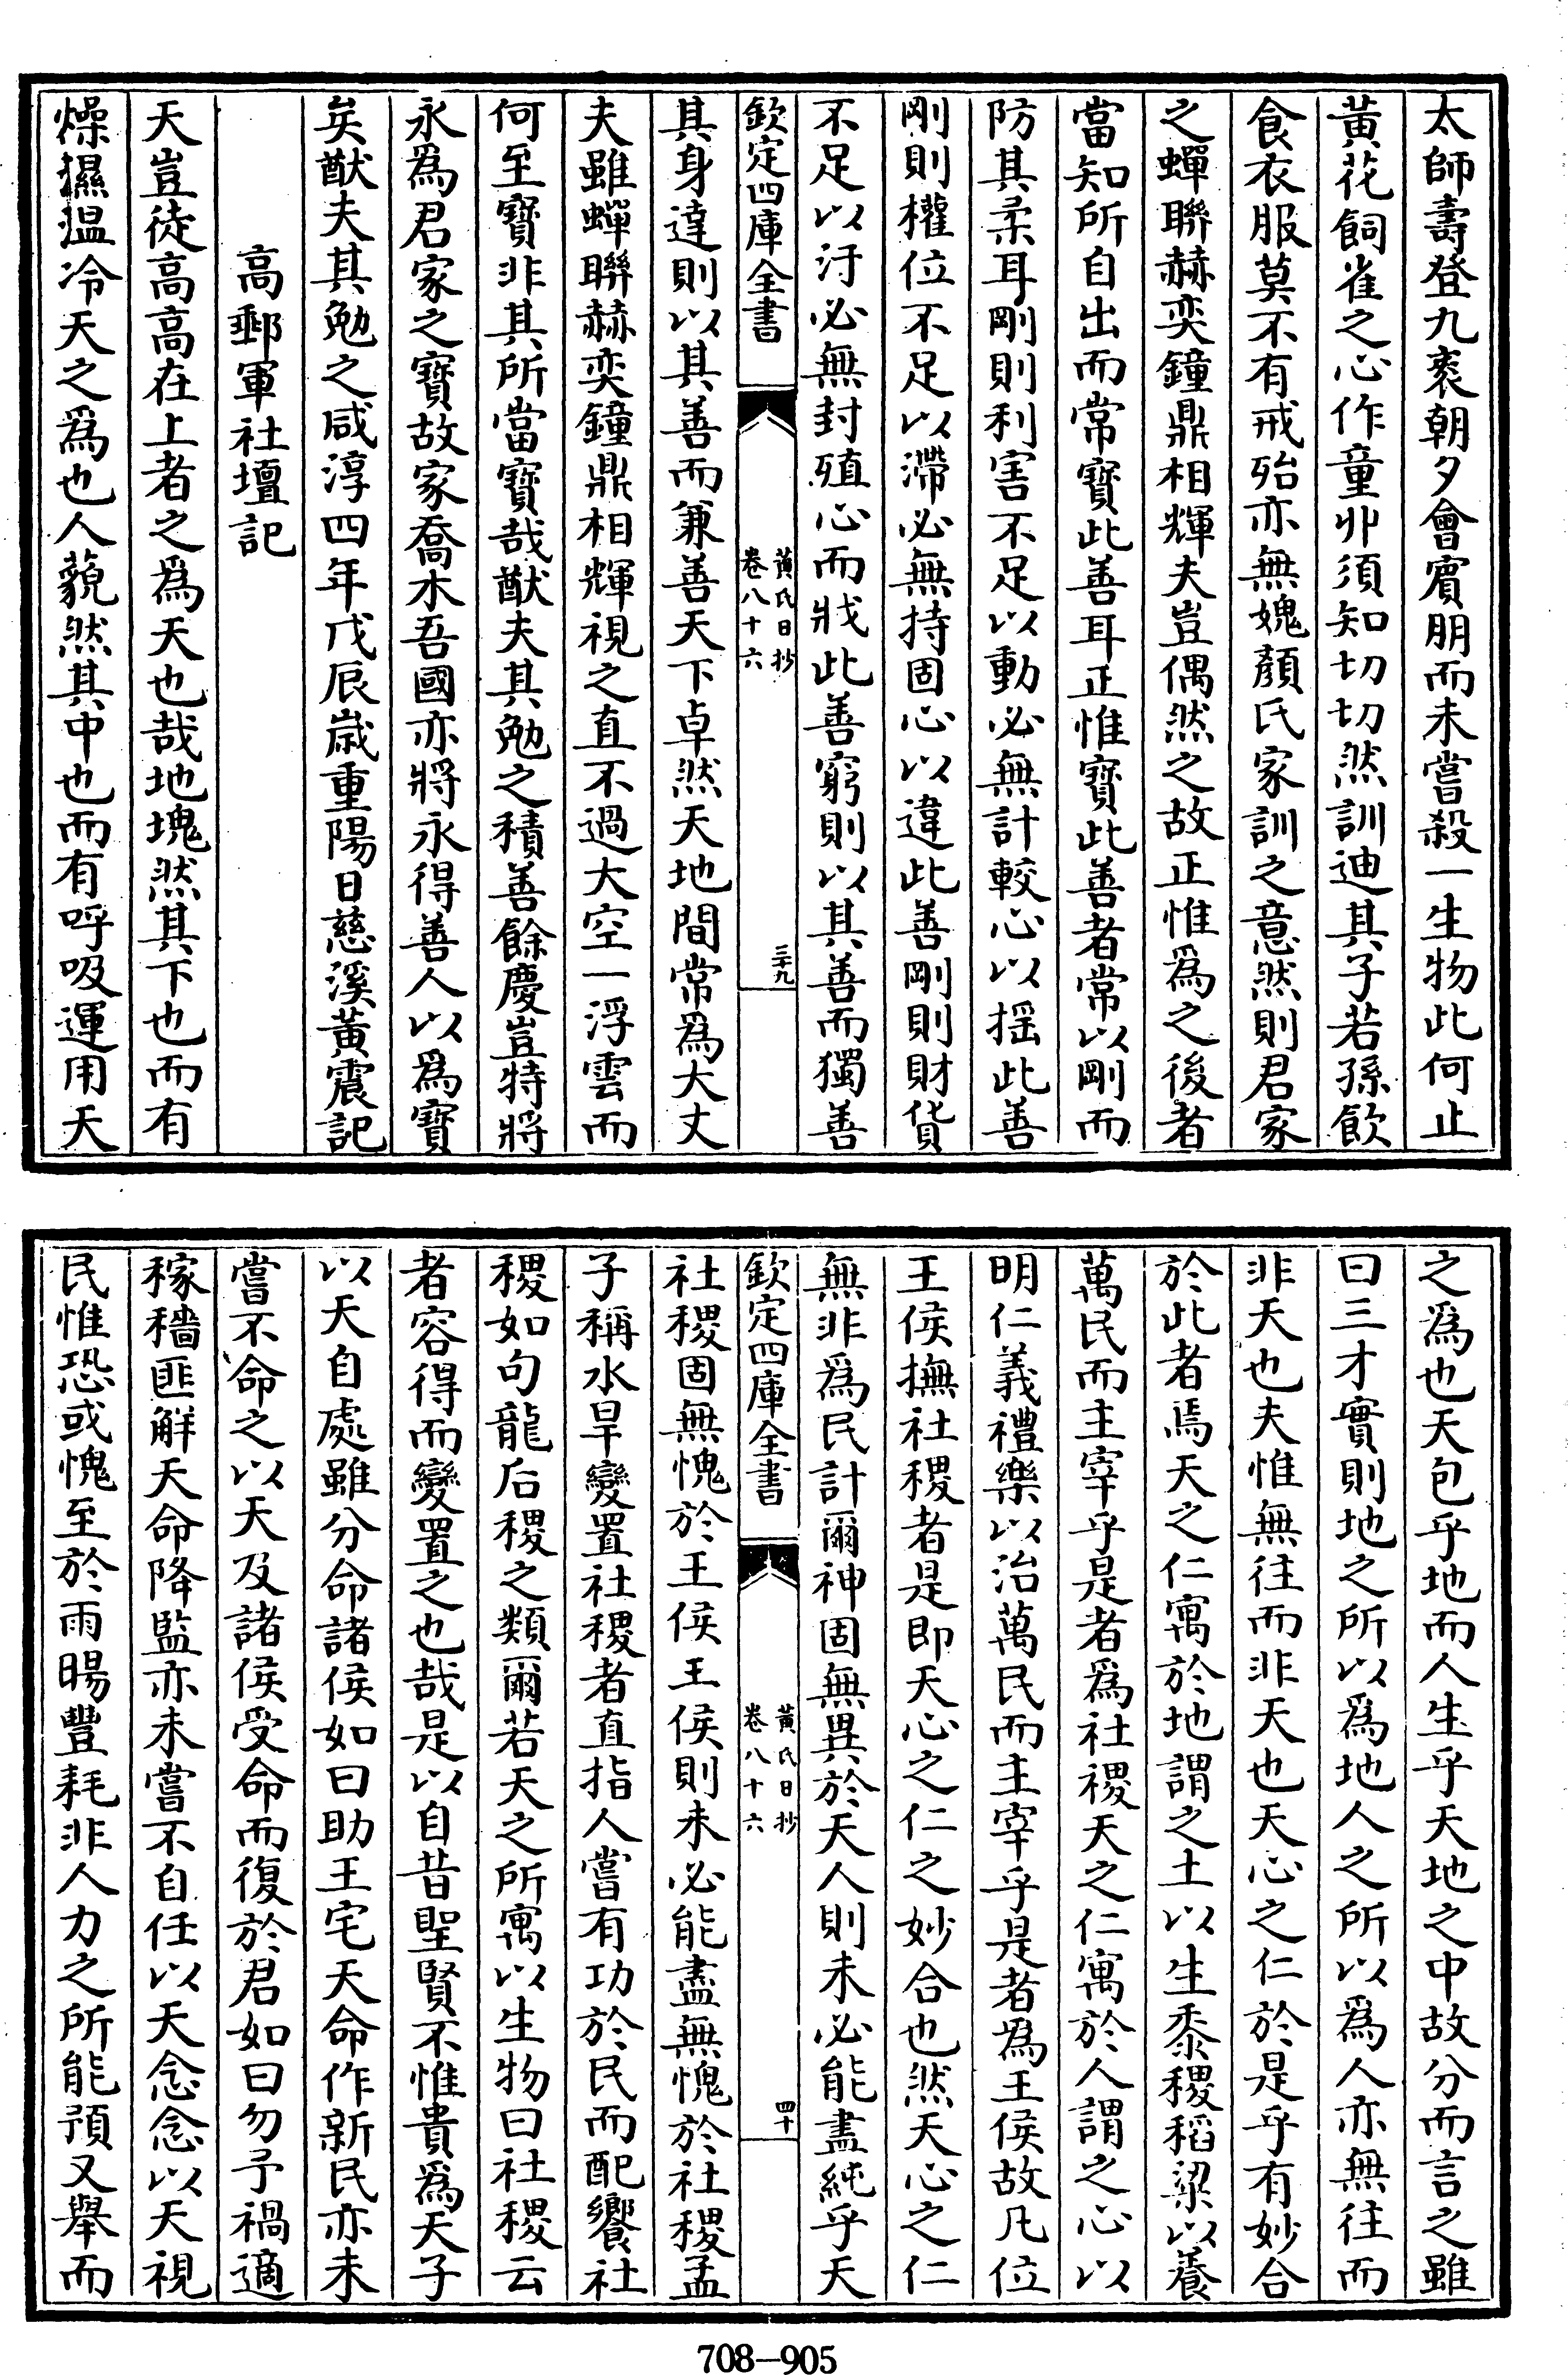 太師壽登九袠朝夕會賓朋而未嘗殺一生物此何止
黃花飼雀之心作童丱須知切切然訓迪其子若孫飲
食衣服莫不有戒殆亦無媿顏氏家訓之意然則君家
之蟬聯赫奕鐘鼎相輝夫豈偶然之故正惟爲之後者
當知所自出而常寶此善耳正惟寶此善者常以剛而
防其柔耳剛則利害不足以動必無計較心以揺此善
剛則權位不足以滯必無持固心以違此善剛則財貨
不足以汙必無封殖心而戕此善窮則以其善而獨善
欽定四庫全書
黃氏日抄
卷八十六
三十九
其身達則以其善而兼善天下卓然天地間常爲大丈
夫雖蟬聯赫奕鐘鼎相輝視之直不過大空一浮雲而
何至寶非其所當寶哉猷夫其勉之積善餘慶豈特將
永爲君家之寶故家喬木吾國亦將永得善人以爲寶
矣猷夫其勉之咸淳四年戊辰嵗重陽日慈溪黃震記
高郵軍社壇記
天豈徒高高在上者之爲天也哉地塊然其下也而有
燥㬤温冷天之爲也人藐然其中也而有呼吸運用天
之爲也天包乎地而人生乎天地之中故分而言之雖
曰三才實則地之所以爲地人之所以爲人亦無往而
非天也夫惟無往而非天也天心之仁於是乎有妙合
於此者焉天之仁寓於地謂之土以生黍稷稻粱以養
萬民而主宰乎是者爲社稷天之仁寓於人謂之心以
明仁義禮樂以治萬民而主宰乎是者爲王侯故凡位
王侯撫社稷者是即天心之仁之妙合也然天心之仁
無非爲民計爾神固無異於天人則未必能盡純乎天
欽定四庫全書
黃氏日抄
卷八十六
四十
社稷固無愧於王侯王侯則未必能盡無愧於社稷孟
子稱水旱變置社稷者直指人嘗有功於民而配饗社
稷如句龍后稷之類爾若天之所寓以生物曰社稷云
者容得而變置之也哉是以自昔聖賢不惟貴爲天子
以天自處雖分命諸侯如曰助王宅天命作新民亦未
嘗不命之以天及諸侯受命而復於君如曰勿予禍適
稼穡匪解天命降監亦未嘗不自任以天念念以天視
民惟恐或愧至於雨暘豐耗非人力之所能預又舉而
708—905